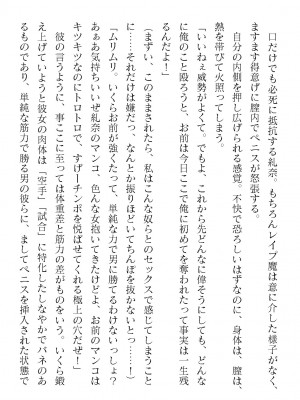 口だけでも必死に抵抗する糺奈。もちろんレイプ魔は意に介した様子がなく、
ますます得意げに膣内でペニスが怒張する。
自分の内側を押し広げられる感覚。不快で恐ろしいはずなのに、身体は、膣は、
熱を帯びて火照ってしまう。
「いいねぇ威勢がよくて。でもよ、これから先どんなに偉そうにしても、どんな
に俺のこと殴ろうと、お前は今日ここで俺に初めてを奪われたって事実は一生残
るんだよ！」
（まずい、このままされたら、私はこんな奴らとのセックスで感じてしまうこと
に……それだけは嫌だっ、なんとか振りほどいてちんぽを抜かないとっ……！）
「ムリムリ。いくらお前が強くたって、単純な力で男に勝てるわけないっしょ？
あぁあ気持ちいいぜ糺奈のマンコ、色んな女抱いてきたけどよ、お前のマンコは
キツキツなのにトロトロで、すげーチンポを悦ばせてくれる極上の穴だぜ！」
彼の言うように、事ここに至っては体重差と筋力の差がものをいう。いくら鍛
え上げていようと彼女の肉体は「空手」「試合」に特化したしなやかでバネのあ
るものであり、単純な筋力で勝る男の彼らに、ましてペニスを挿入された状態で